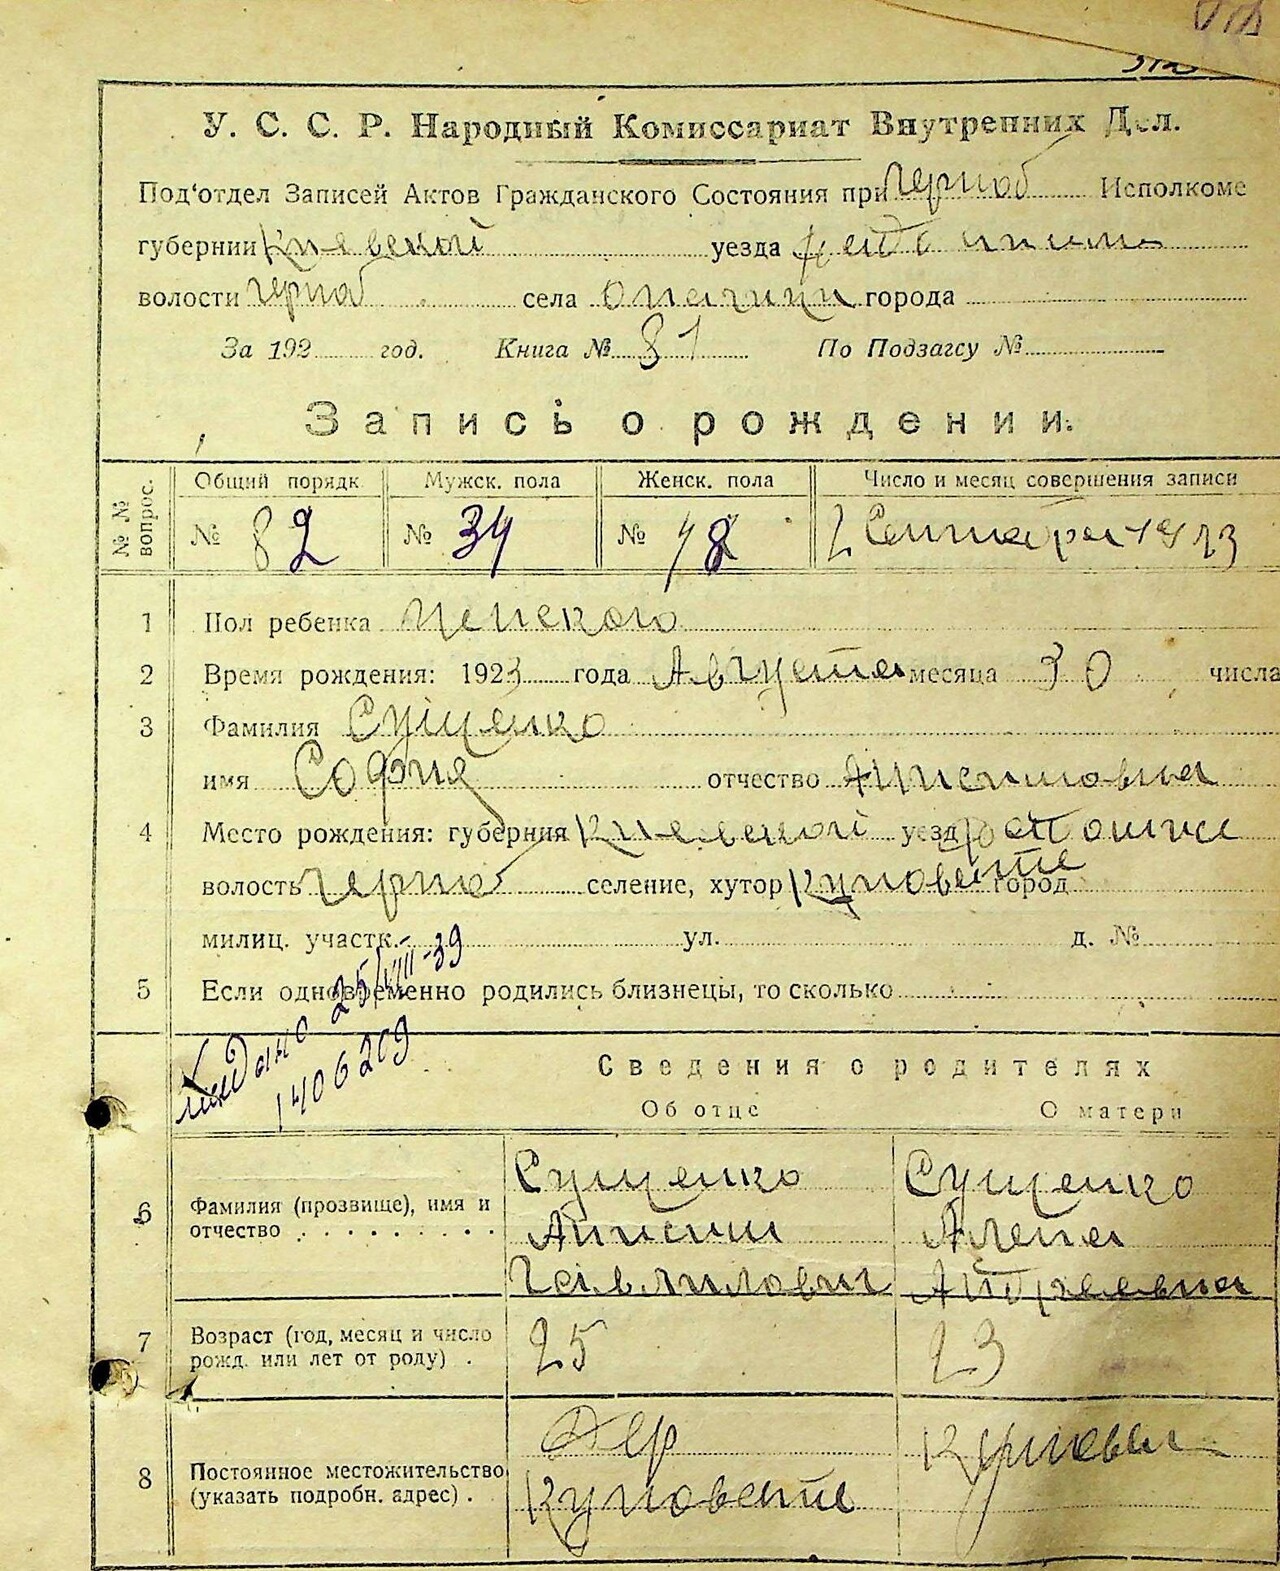 У. С. С. Р. Народный Комиссариат Внутренних Дел.
Под'отдел Записей Актов Гражданского Состояния при Черноб Исполкоме
губернии Киевской уезда
волости Черноб села Опачичи города
За 192 год. Книга № 81 По Подзагсу №
Запись о рождении.
№ № вопрос. Общий порядк Мужск. пола Женск. пола Число и месяц совершения записи
№ 82 № 34 № 48 2 Сентября 1923
1 Пол ребенка женского
2 Время рождения: 1923 года Августа месяца 30 числа
3 Фамилия Сущенко
имя София отчество
4 Место рождения: губерния Киевской уезд
волость Черноб селение, хутор город
милиц. участк. ул. д. №
5 Если одновременно родились близнецы, то сколько
25/VIII-39
1406209
Сведения о родителях
Об отце О матери
6 Фамилия (прозвище), имя и отчество Сущенко Сущенко
Алена
Гаврилович Андреевна
7 Возраст (год, месяц и число рожд. или лет от роду) . 25 23
8 Постоянное местожительство (указать подробн. адрес) . Дер